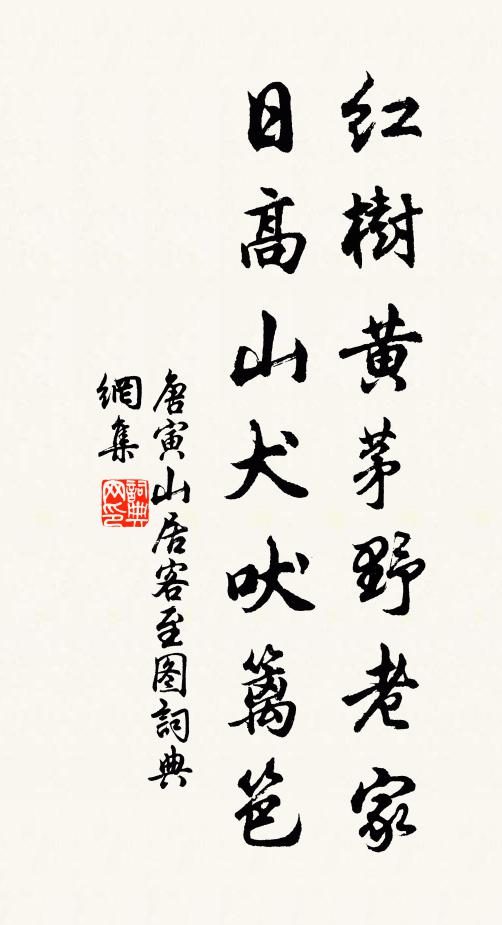 红樹黄茅野老家
日高山犬吠籬笆
唐寅山居客至图詞典
網集
詞典
网印